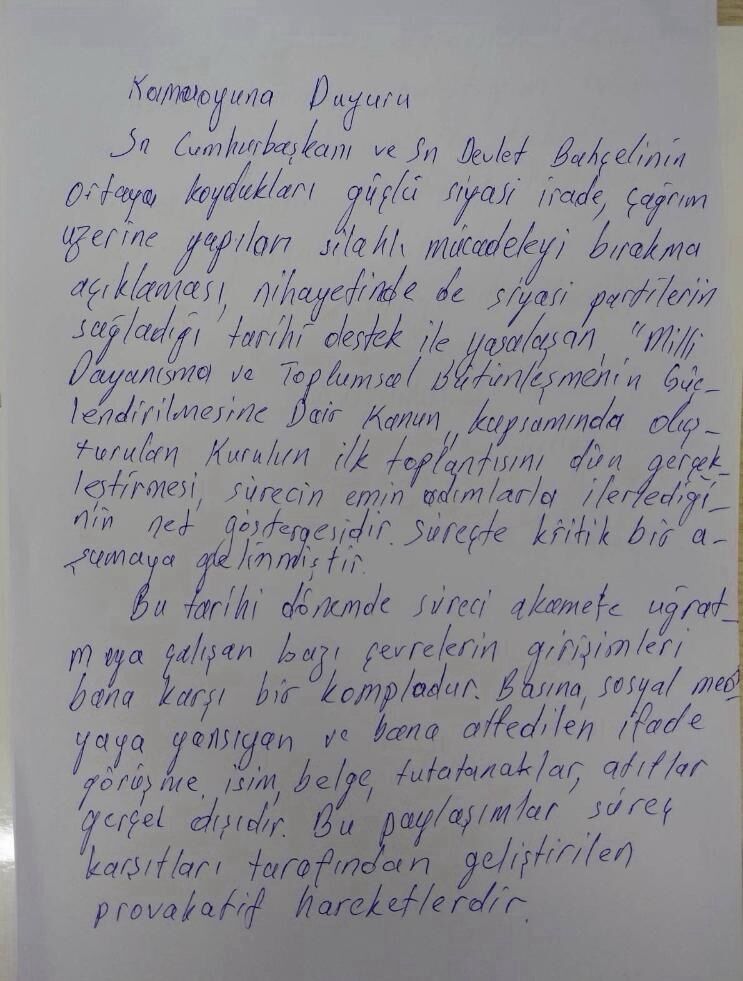 Kamuoyuna Duyuru
Sn Cumhurbaşkanı ve Sn Devlet Bahçelinin
ortaya koydukları güçlü siyasi irade, çağrım
üzerine yapılan silahlı mücadeleyi bırakma
açıklaması, nihayetinde de siyasi partilerin
sağladığı tarihî destek ile yasalaşan "Milli
Dayanışma ve Toplumsal Bütünleşmenin Güç-
lendirilmesine Dair Kanun" kapsamında oluş-
turulan Kurulun ilk toplantısını dün gerçek-
leştirmesi, sürecin emin adımlarla ilerlediği-
nin net göstergesidir. Süreçte kritik bir a-
şamaya gelinmiştir.
Bu tarihi dönemde süreci akamete uğrat-
maya çalışan bazı çevrelerin girişimleri
bana karşı bir kompladur. Basına, sosyal med-
yaya yansıyan ve bana atfedilen ifade
görüşme, isim, belge, tutatanaklar, atıflar
gerçek dışıdır. Bu paylaşımlar süreç
karşıtları tarafından geliştirilen
provakatif hareketlerdir.